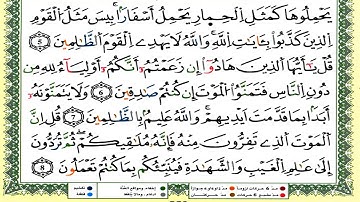 يَحْمِلُوهَا كَمَثَلِ اِ۬لْحِمَارِ يَحْمِلُ أَسْفَارَاۢ بِيسَ مَثَلُ اُ۬لْقَوْمِ
اِ۬لذِينَ كَذَّبُواْ بِـَٔايَٰتِ اِ۬للَّهِ وَاللَّهُ لَا يَهْدِے اِ۬لْقَوْمَ اَ۬لظَّٰلِمِينَ ۝5
قُلْ يَٰٓأَيُّهَا اَ۬لذِينَ هَادُوٓاْ إِن زَعَمْتُمُۥٓ أَنَّكُمُۥٓ أَوْلِيَآءُ لِلهِ مِن
دُونِ اِ۬لنَّاسِ فَتَمَنَّوُاْ اُ۬لْمَوْتَ إِن كُنتُمْ صَٰدِقِينَ ۝6 وَلَا يَتَمَنَّوْنَهُۥٓ
أَبَدَاۢ بِمَا قَدَّمَتَ اَيْدِيهِمْ وَاللَّهُ عَلِيمُۢ بِالظَّٰلِمِينَ ۝7 قُلِ اِنَّ
اَ۬لْمَوْتَ اَ۬لذِے تَفِرُّونَ مِنْهُ فَإِنَّهُۥ مُلَٰقِيكُمْ ثُمَّ تُرَدُّونَ
إِلَىٰ عَٰلِمِ اِ۬لْغَيْبِ وَالشَّهَٰدَةِ فَيُنَبِّئُكُم بِمَا كُنتُمْ تَعْمَلُونَ ۝8